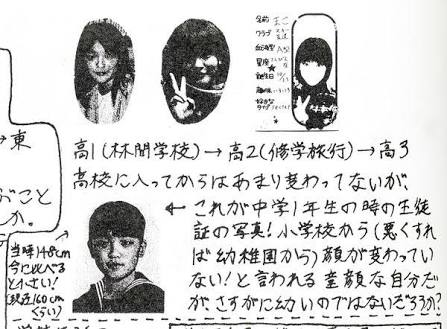 名前
クラブ
血液型 A型
星座
誕生日
趣味
好きな
タイプ
高1(林間学校)→高2(修学旅行)→高3
高校に入ってからはあまり変わってないが、
← これが中学1年生の時の生徒
証の写真!小学校から(悪くすれ
ば幼稚園から)顔が変わってい
ない!と言われる童顔な自分だ
が、さすがに幼いのではないだろうか?
→東
こと
か。
当時148cm
今に比べる
と小さい!
(現在160cm
くらい)